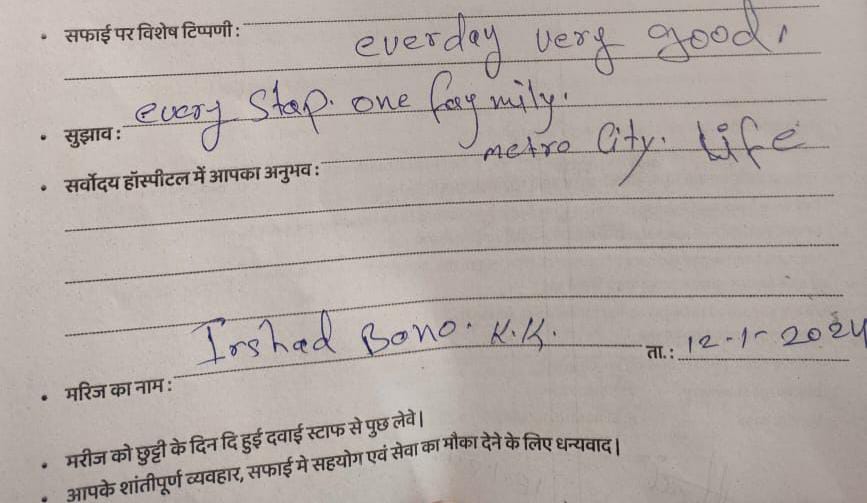 • सफाई पर विशेष टिप्पणी :
everday very good,
• सुझाव : every Stap. one faymily.
• सर्वोदय हॉस्पीटल में आपका अनुभव : metro City. Life
• मरिज का नाम : Irshad Bono. K.K. ता. : 12-1-2024
• मरीज को छुट्टी के दिन दि हुई दवाई स्टाफ से पुछ लेवे |
• आपके शांतीपूर्ण व्यवहार, सफाई मे सहयोग एवं सेवा का मौका देने के लिए धन्यवाद |